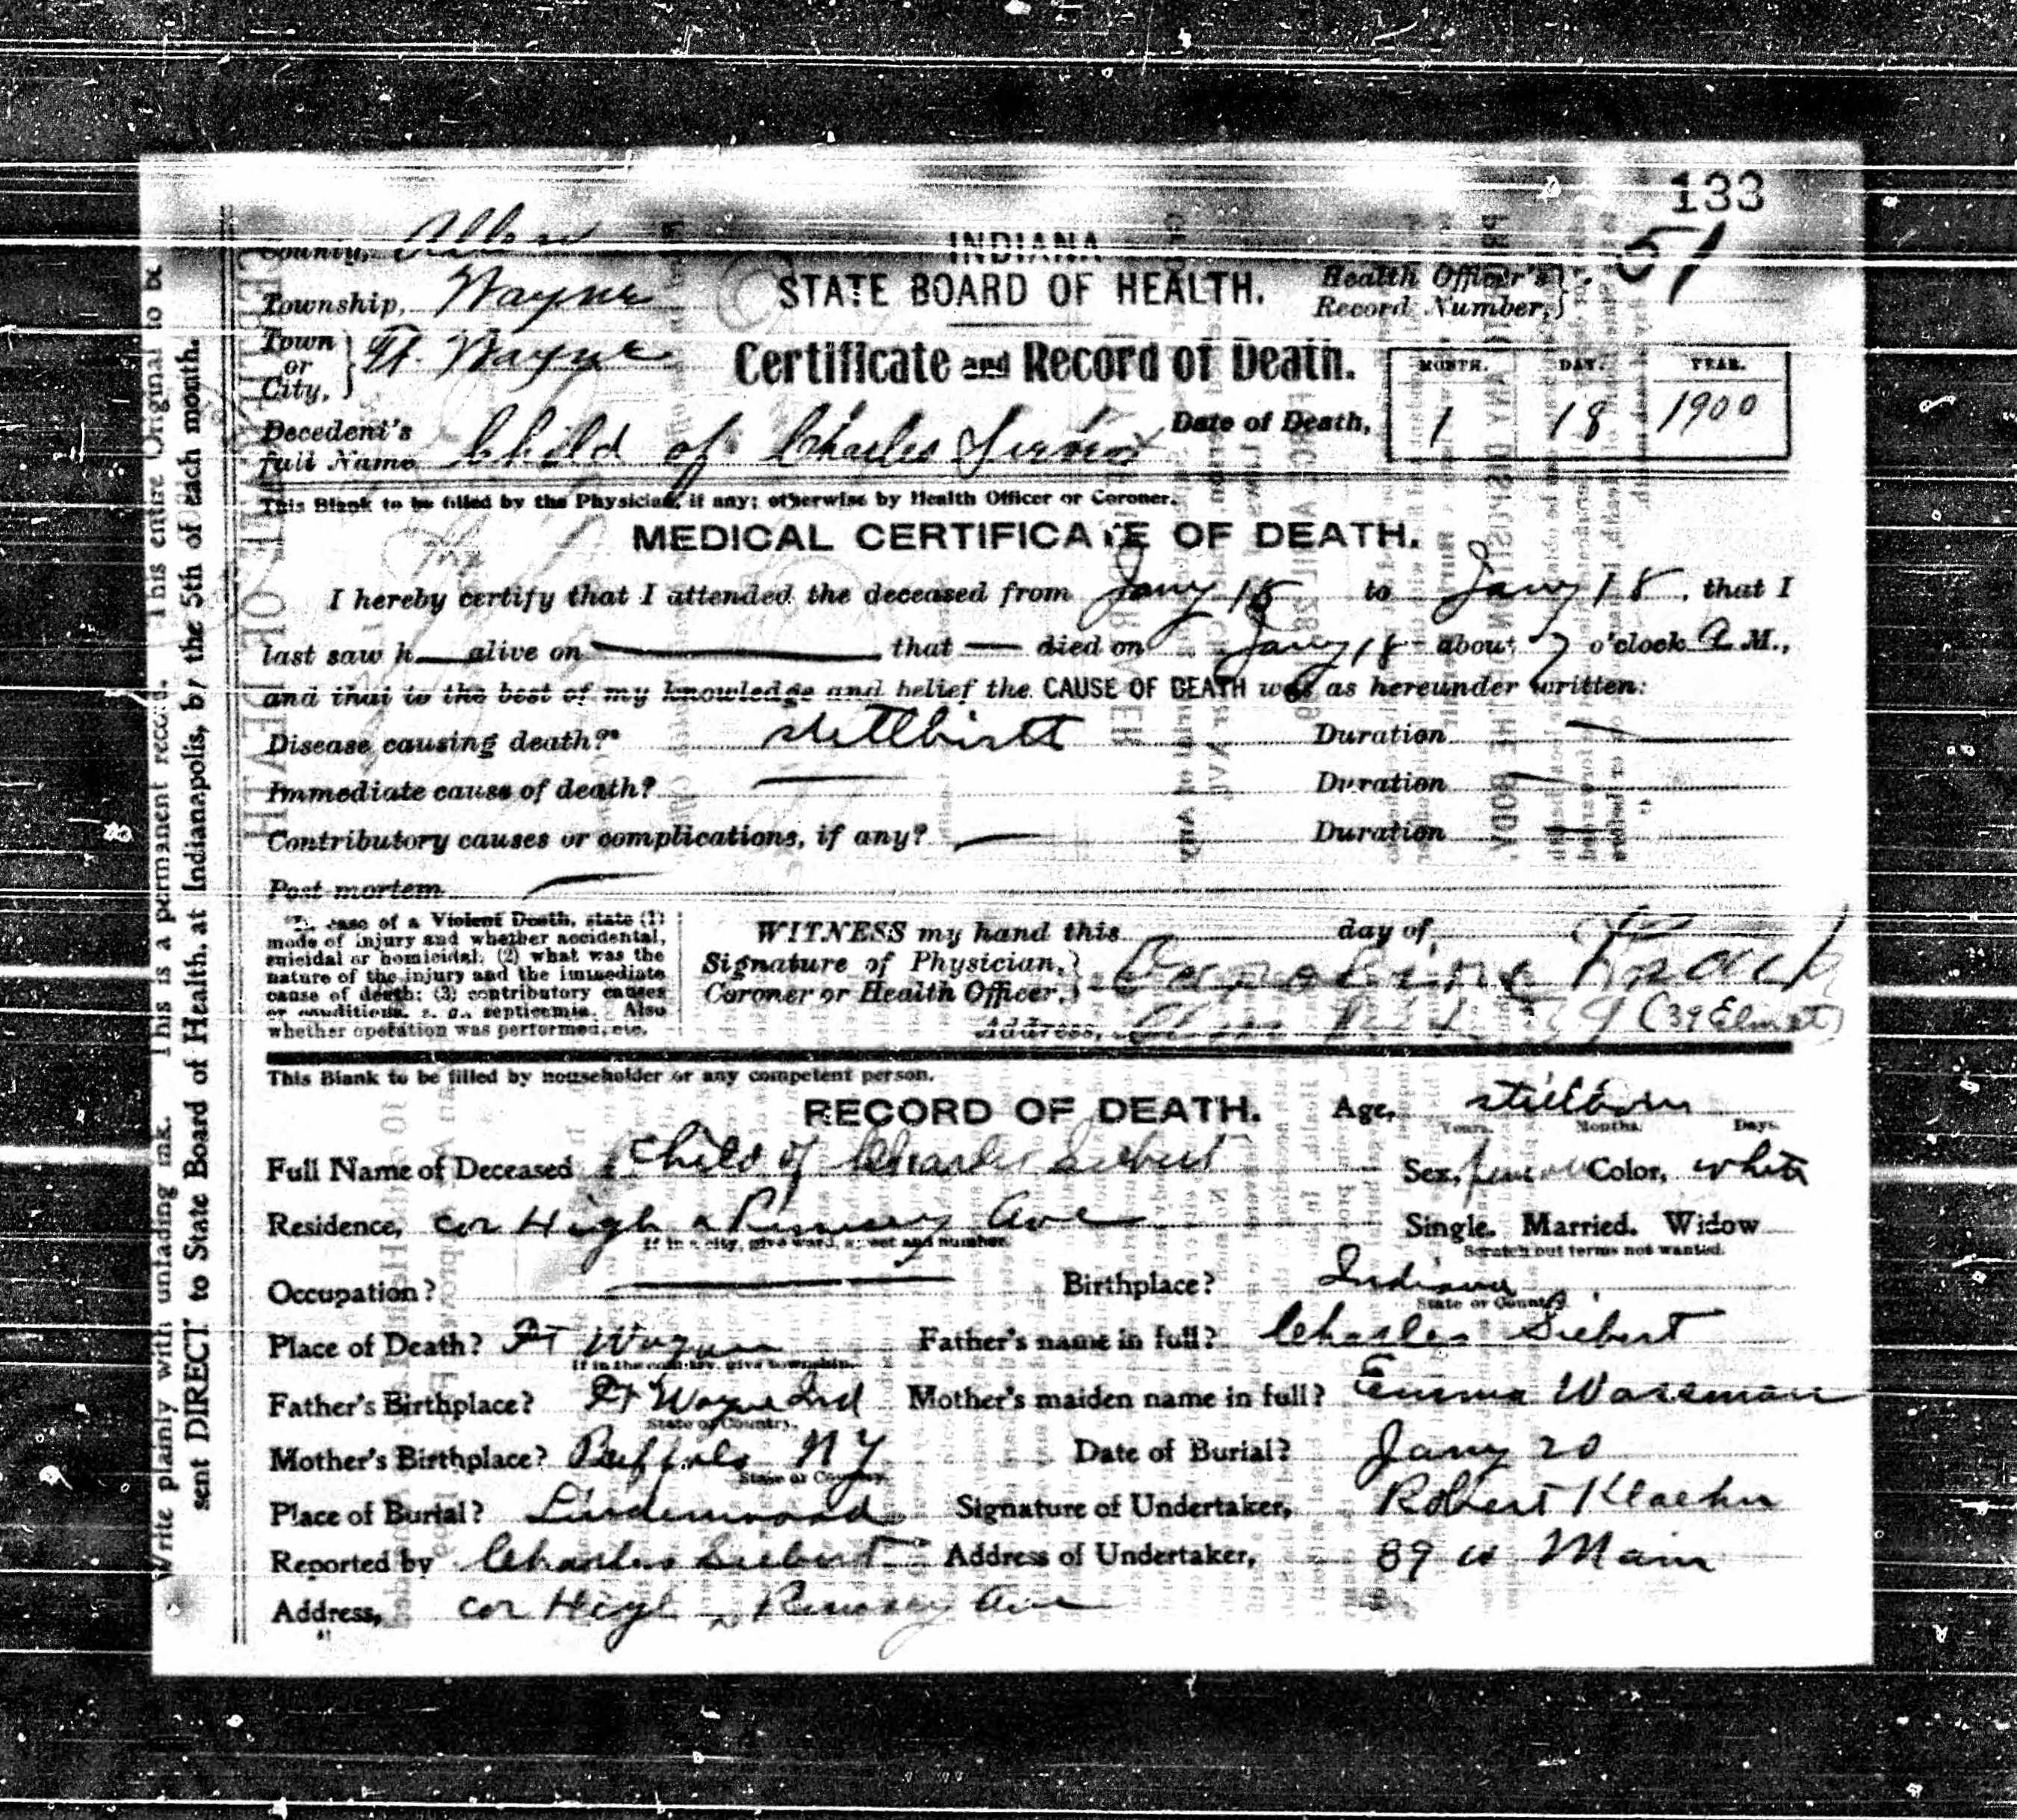 133
County, Allen
INDIANA
STATE BOARD OF HEALTH.
Health Officer's Record Number, 51
Township, Wayne
Town or City, Ft. Wayne
Certificate and Record of Death.
MONTH. DAY. YEAR.
Date of Death, 1 18 1900
Decedent's full Name Child of Charles
This Blank to be filled by the Physician, if any; otherwise by Health Officer or Coroner.
MEDICAL CERTIFICATE OF DEATH.
I hereby certify that I attended the deceased from Jany 18 to Jany 18, that I
last saw h alive on that died on Jany 18 about 7 o'clock A. M.,
and that to the best of my knowledge and belief the CAUSE OF DEATH was as hereunder written:
Disease causing death?* stillbirt Duration
Immediate cause of death? Duration
Contributory causes or complications, if any? Duration
Post mortem
*In case of a Violent Death, state (1)
mode of injury and whether accidental,
suicidal or homicidal; (2) what was the
nature of the injury and the immediate
cause of death; (3) contributory causes
or conditions, e. g., septicemia. Also
whether operation was performed, etc.
WITNESS my hand this day of
Signature of Physician, Coroner or Health Officer, Caroline
Address, 39 (39 Elm st)
This Blank to be filled by householder or any competent person.
RECORD OF DEATH.
Age, stillborn
Years. Months. Days.
Full Name of Deceased Child of Charles Siebert Sex, female Color, white
Residence, cor High & Rumsey Ave Single. Married. Widow
If in a city, give ward, street and number. Scratch out terms not wanted.
Occupation? Birthplace? Indiana
State or Country.
Place of Death? Ft Wayne Father's name in full? Charles Siebert
If in the country, give township.
Father's Birthplace? Ft Wayne Ind Mother's maiden name in full? Emma Wassman
State or Country.
Mother's Birthplace? Buffalo N Y Date of Burial? Jany 20
State or Country.
Place of Burial? Lindenwood Signature of Undertaker, Robert Klaehn
Reported by Charles Siebert Address of Undertaker, 89 W Main
Address, cor High & Rumsey Ave
Write plainly with unfading ink. This is a permanent record. This entire Original to be
sent DIRECT to State Board of Health, at Indianapolis, by the 5th of each month.